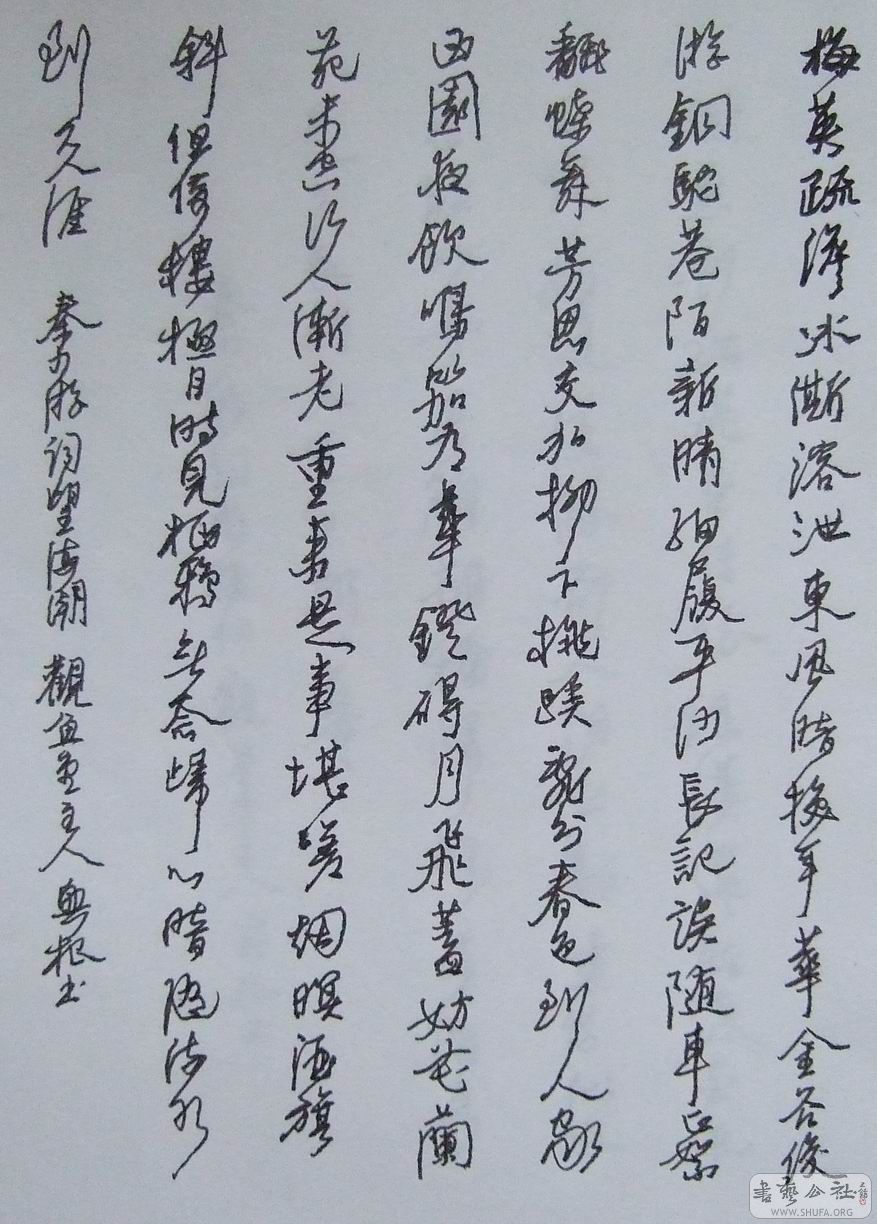 梅英疏澹冰澌溶泄東風暗換年華金谷俊
游銅駝巷陌新晴細履平沙長記誤随車正絮
翻蝶舞芳思交加柳下桃蹊亂分春色到人家
西園夜飲鳴笳有華鐙碍月飛蓋妨花蘭
苑未空行人漸老重來是事堪嗟烟暝酒旗
斜但倚樓極目時見栖鴉無奈歸心暗隨流水
到天涯 秦少游詞望海潮 觀魚主人書
書藝公社
WWW.SHUFA.ORG